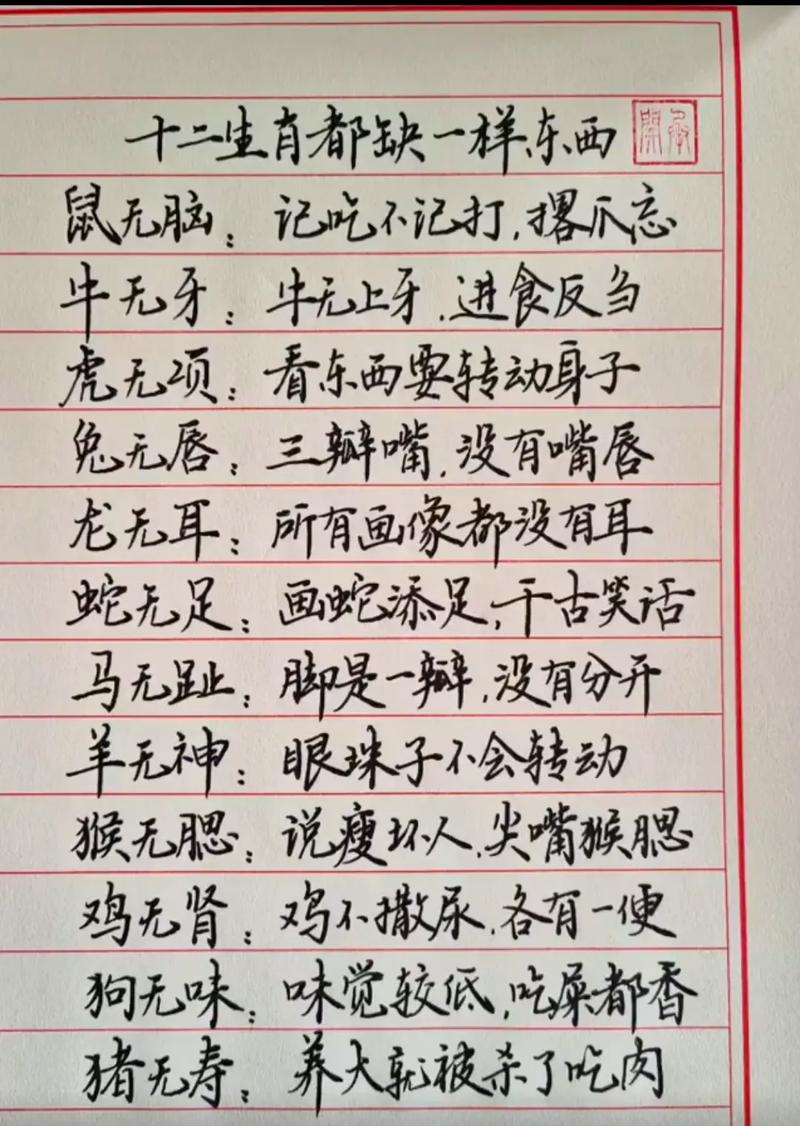 十二生肖都缺一样东西
鼠无脑：记吃不记打，撂爪忘
牛无牙：牛无上牙，进食反刍
虎无项：看东西要转动身子
兔无唇：三瓣嘴，没有嘴唇
龙无耳：所有画像都没有耳
蛇无足：画蛇添足，千古笑话
马无趾：脚是一瓣，没有分开
羊无神：眼珠子不会转动
猴无腮：说瘦坏人，尖嘴猴腮
鸡无肾：鸡不撒尿，各有一便
狗无味：味觉较低，吃屎都香
猪无寿：养大就被杀了吃肉